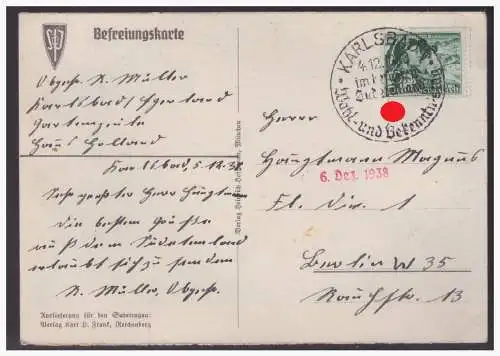 SdP
Befreiungskarte
Obgefr. K. Müller
Karlsbad/Egerland
Gartenzeile
Haus Holland
Karlsbad, 5.12.38
Sehr geehrter Herr Hauptm.
Die besten Grüße
aus dem Sudetenland
erlaubt sich zu senden
K. Müller, Obgefr.
Auslieferung für den Sudetengau:
Verlag Karl H. Frank, Reichenberg
Verlag Heinrich München
KARLSBAD
4.12.
Wahl- und Bekenntnistag
Herrn
Hauptmann Magnus
6. Dez. 1938
Fl. Div. 1
Berlin W 35
Rauchstr. 13